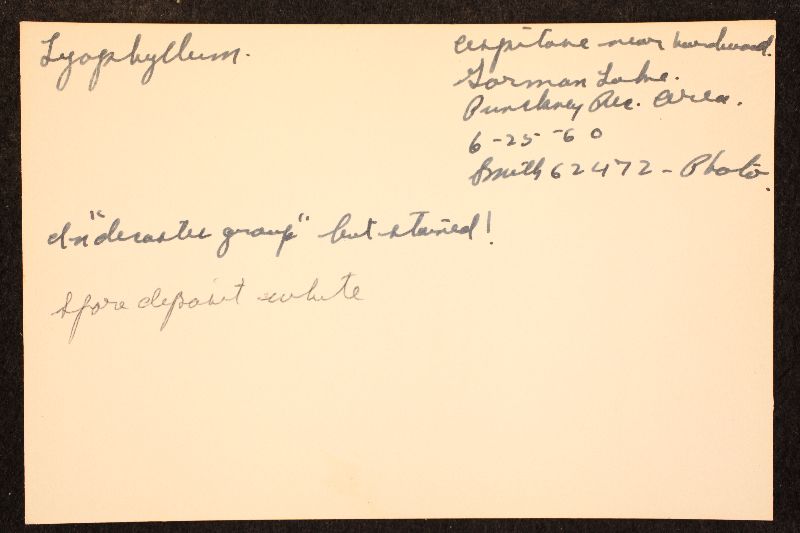 Lyophyllum.
cespitose near hardwood.
Gorman Lake.
Pinckney Rec. Area.
6-25-60
Smith 62472 - Photo.
In "decastes group" but stained!
spore deposit white